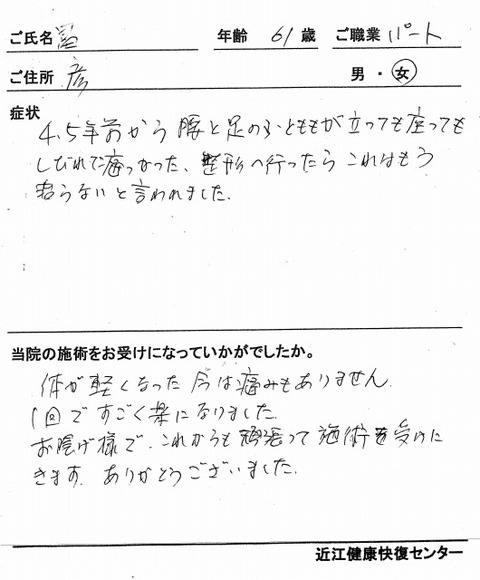 ご氏名 冨 年齢 61 歳 ご職業 パート
ご住所 彦 男・女
症状
4.5年前から 腰と足のふとももが立っても座っても
しびれて痛かった、整形へ行ったら これはもう
治らないと言われました.
当院の施術をお受けになっていかがでしたか。
体が軽くなった 今は痛みもありません.
1回ですごく楽になりました.
お陰げ様で、これからも頑張って施術を受けに
きます. ありがとうございました.
近江健康快復センター